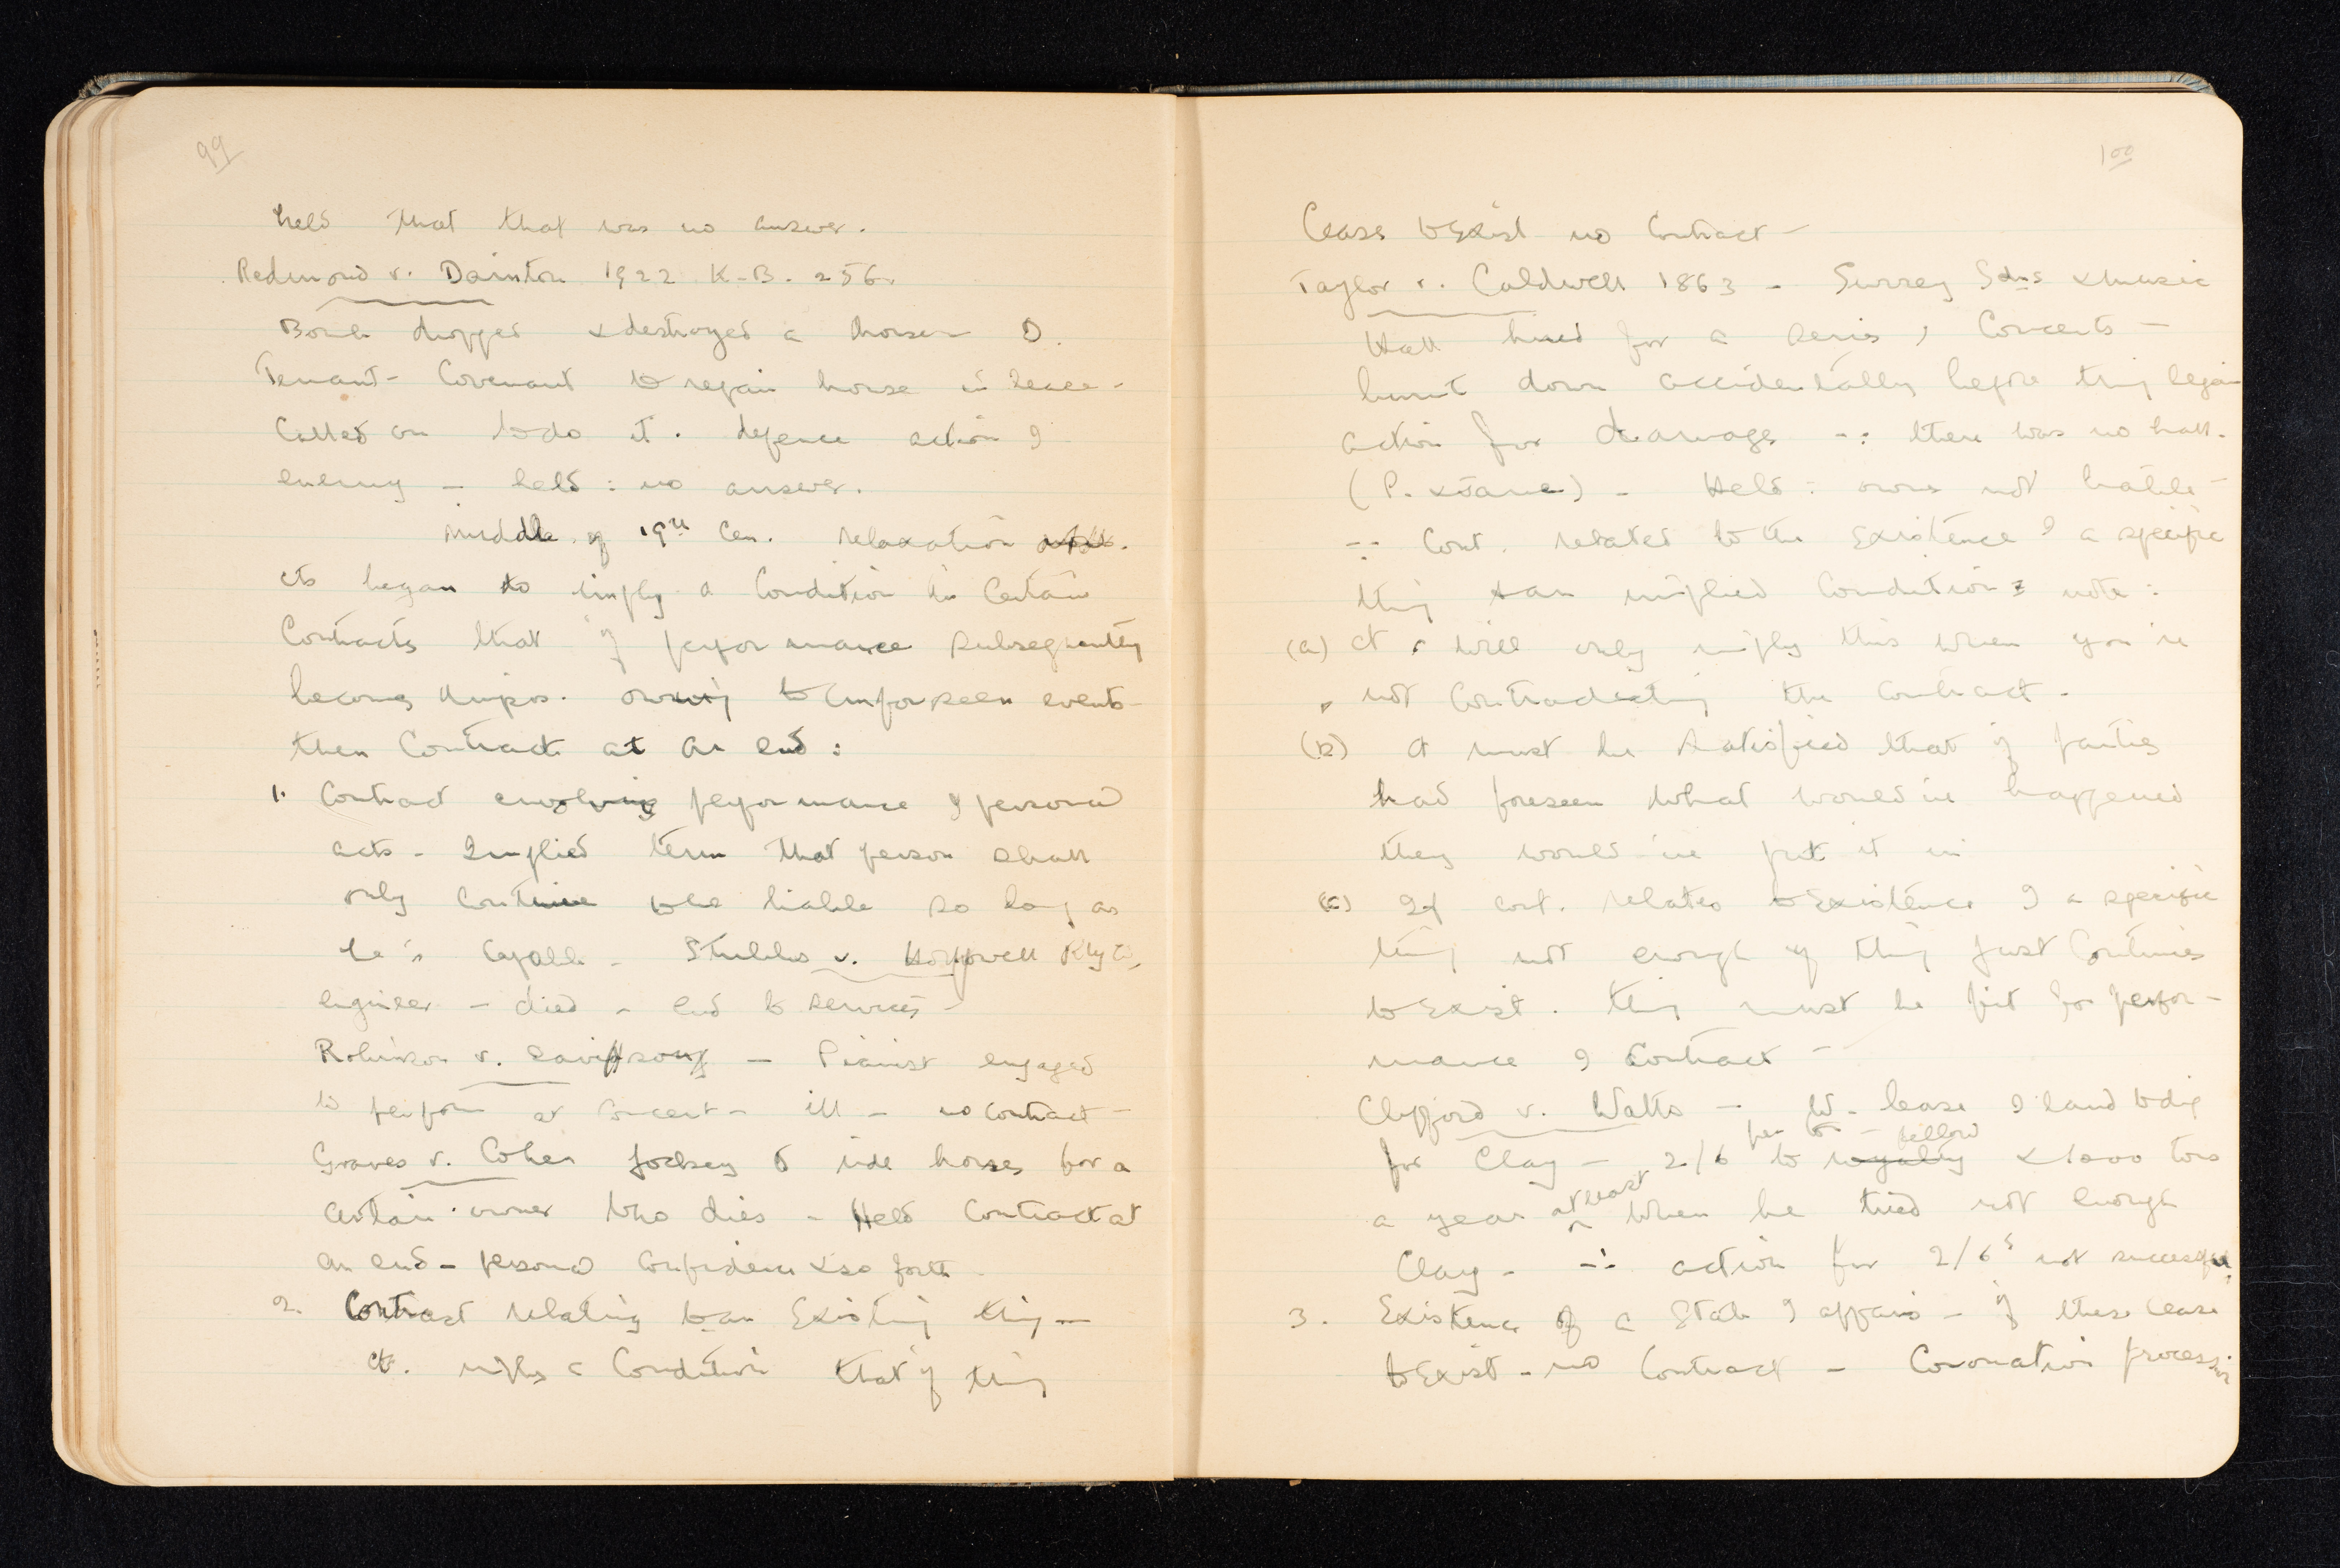 99
held that that was no answer.
Redmond v. Dainton 1922 K.B. 256.
Bomb dropped & destroyed a house D.
Tenant - Covenant to repair house in lease -
Called on to do it. defence action of
enemy - held: no answer.
Middle of 19th Cen. relaxation
cts began to imply a Condition in Certain
Contracts that if performance subsequently
becomes impos. owing to unforseen events -
then Contract at an end:
1. Contract envolving performance of personal
acts - Implied term that person shall
only continue to be liable so long as
he's Capable - Stubbs v. Holywell Rly Co,
engineer - died - end to services -
Robinson v. Davidson - Pianist engaged
to perform at Concert - ill - no contract -
Graves v. Cohen jockey to ride horses for a
certain owner who dies - Held Contract at
an end - personal confidence & so forth -
2. Contract relating to an Existing thing -
ct. implies a Condition that if thing
100
Cease to Exist no Contract -
Taylor v. Caldwell 1863 - Surrey Gdns & Music
Hall hired for a series of Concerts -
burnt down accidentally before they began
action for damages ∵ there was no hall.
(P. & Jane) - Held: owner not liable -
∵ Cont. related to the Existence of a specific
thing & an implied Condition: note:
(a) ct will only imply this when you're
not Contradicting the Contract.
(b) ct must be satisfied that if parties
had foreseen what would've happened
they would've put it in
(c) If cont. relates to Existence of a specific
thing not enough if thing just Continues
to Exist. thing must be fit for perfor-
mance of Contract -
Clifford v. Watts - W. lease of land to dig
per ton - fellow
for Clay - 2/6 to royalty & 1000 tons
a year at least when he tried not enough
Clay - ∴ action for 2/6s not successful,
3. Existence of a State of affairs - if these cease
to Exist - no Contract - Coronation procession